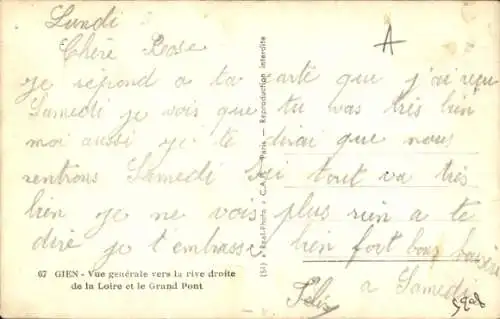 Lundi
A
Chère Rose
je répond a ta carte que j'ai reçu
Samedi je vois que tu vas très bien
moi aussi je te dirai que nous
rentrons Samedi Ici tout va très
bien je ne vois plus rien a te
dire je t'embrasse bien fort bons baisers
a Samedi
Félix
67 GIEN - Vue générale vers la rive droite
de la Loire et le Grand Pont
(51) Real-Photo C.A.P. Paris - Reproduction interdite